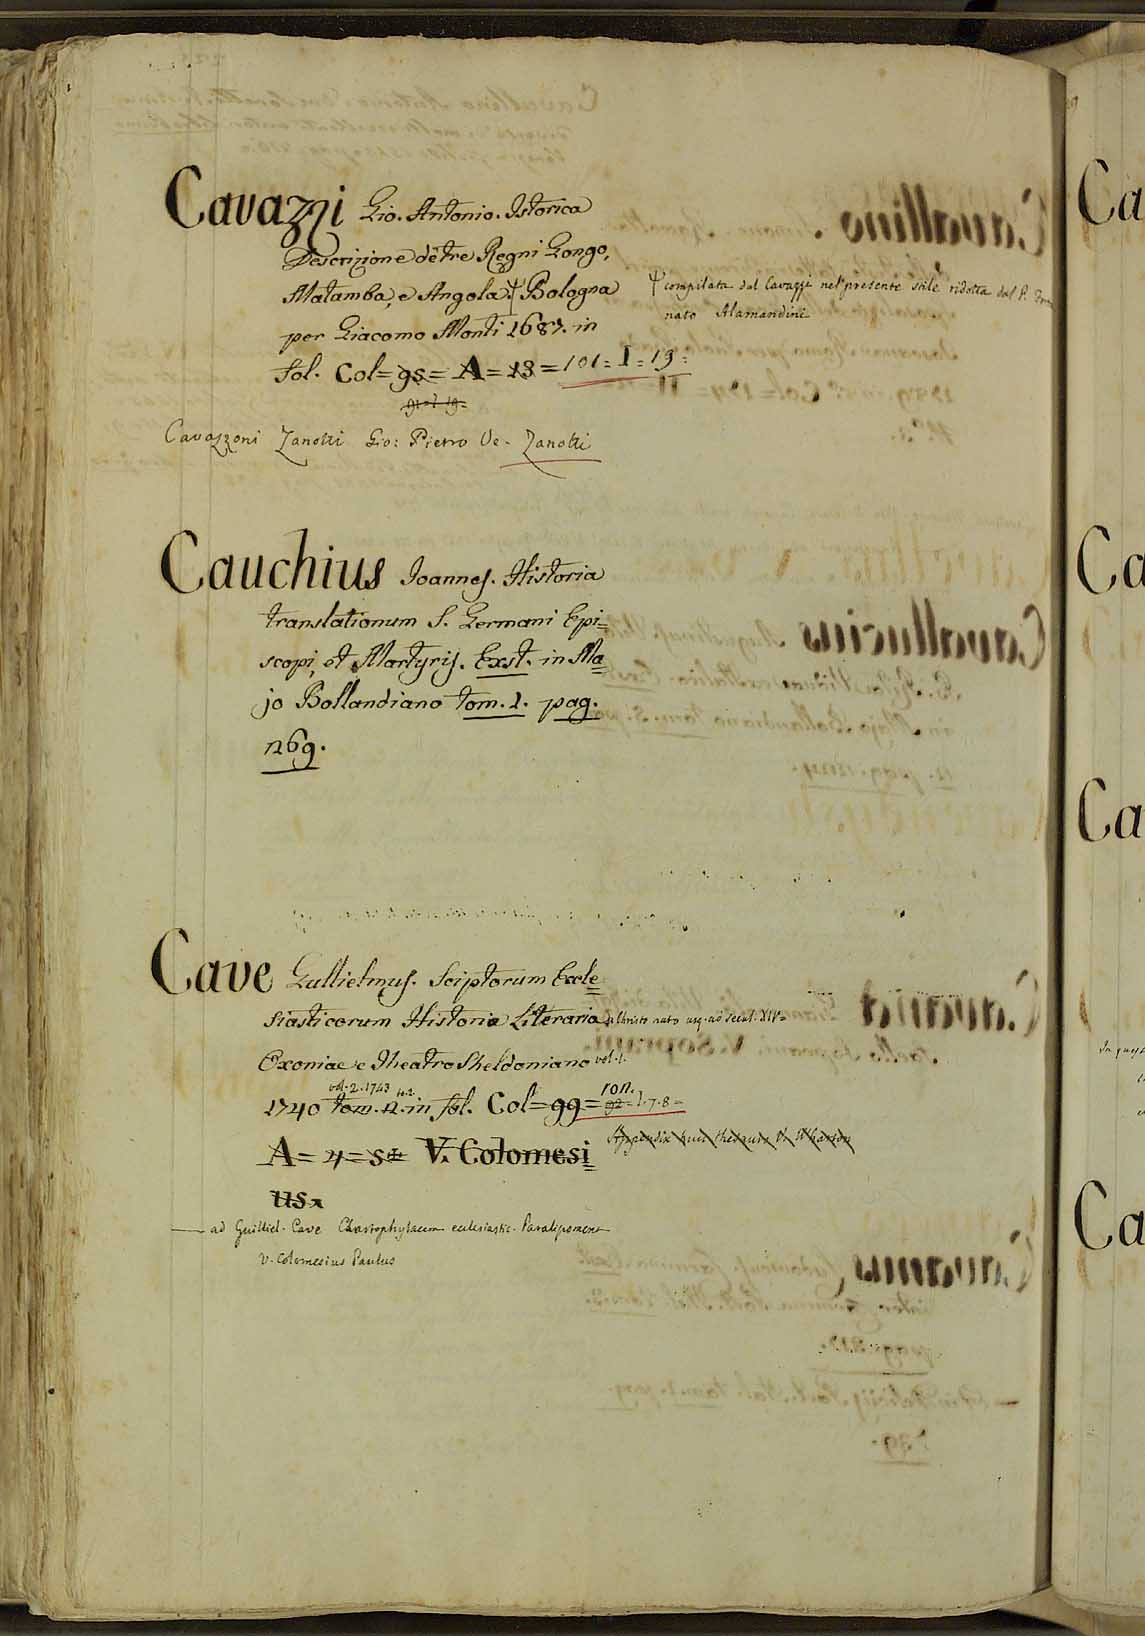 Cavazzi Gio. Antonio. Istorica
Descrizione de tre Regni Congo,
Matamba, e Angola. Bologna
compilata dal Cavazzi nel presente stile ridotta dal P.
nato Alamandini
per Giacomo Monti 1687. in
fol. Col= 95= A= 13 = 101= I= 19=
Cavazzoni Zanotti Gio: Pietro Ve. Zanotti
Cauchius Joannes. Historia
translationum S. Germani Epi=
scopi, et Martyris. Exst. in Ma=
jo Bollandiano tom. 1. pag.
269.
Cave Gullielmus. Sciptorum Eccle=
siasticorum Historia Literaria a Christo nato usq. ad secul. XIV=
Oxoniae e Theatro Sheldoniano vol. 1.
vol. 2. 1743
1740 tom. 2. in fol. Col= 99= 102. 92= I. 7. 8=
Appendix huic thesauro V. Wharton
A= 4= 5= V. Colomesi=
us
ad Guilliel. Cave Chartophylacem ecclesiastic. Paralipomena
V. Colomesius Paulus
Ca
Ca
Ca
Ca